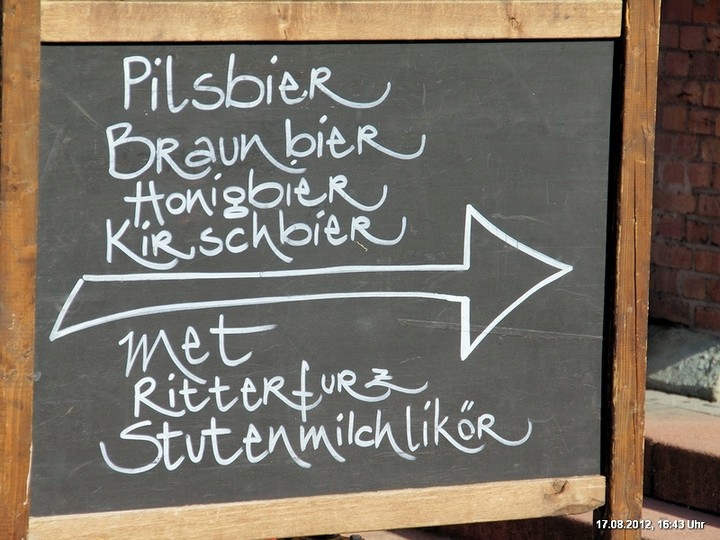 Pilsbier
Braunbier
Honigbier
Kirschbier
Met
Ritterfurz
Stutenmilchlikör
17.08.2012, 16:43 Uhr